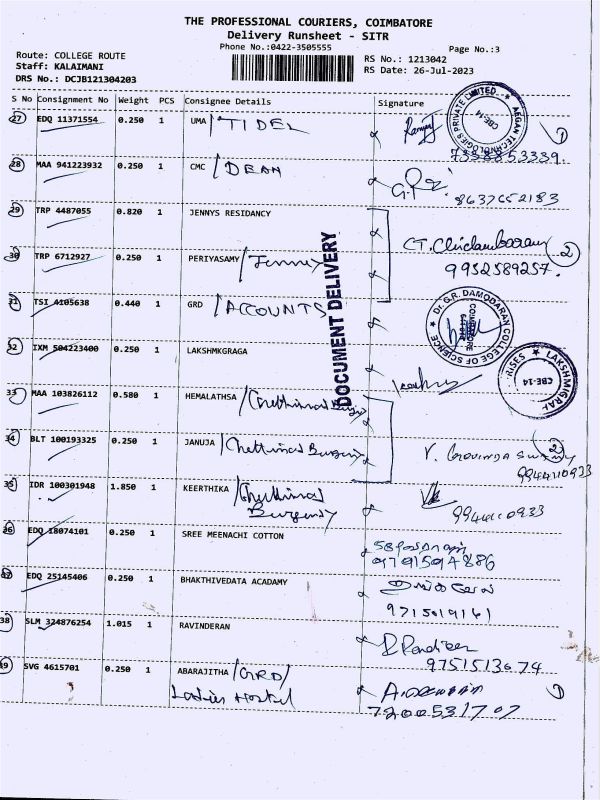 THE PROFESSIONAL COURIERS, COIMBATORE
Delivery Runsheet - SITR
Phone No.:0422-3505555
Page No.:3
Route: COLLEGE ROUTE
Staff: KALAIMANI
DRS No.: DCJB121304203
RS No.: 1213042
RS Date: 26-Jul-2023
S No Consignment No Weight PCS Consignee Details Signature
27 EDQ 11371554 0.250 1 UMA / TIDEL
7338853339.
28 MAA 941223932 0.250 1 CMC / DEAN
8637652183
29 TRP 4487055 0.820 1 JENNYS RESIDANCY
CT. Chidambaram 2
30 TRP 6712927 0.250 1 PERIYASAMY / Jenney
9952589257.
31 TSI 4105638 0.440 1 GRD / ACCOUNTS
Dr. G.R. DAMODARAN COLLEGE OF SCIENCE
COIMBATORE
32 IXM 504223400 0.250 1 LAKSHMKGRAGA
CBE-14
33 MAA 103826112 0.580 1 HEMALATHSA
34 BLT 100193325 0.250 1 JANUJA
2
9944110933
35 IDR 100301948 1.850 1 KEERTHIKA
9944110933
36 EDQ 18074101 0.250 1 SREE MEENACHI COTTON
9791594886
37 EDQ 25145406 0.250 1 BHAKTHIVEDATA ACADAMY
9715019161
38 SLM 324876254 1.015 1 RAVINDERAN
9751513674
39 SVG 4615701 0.250 1 ABARAJITHA / GRD/
Ladies Hostel
7200531707
DOCUMENT DELIVERY
AEGAN TECHNOLOGIES PRIVATE LIMITED
CBE-14